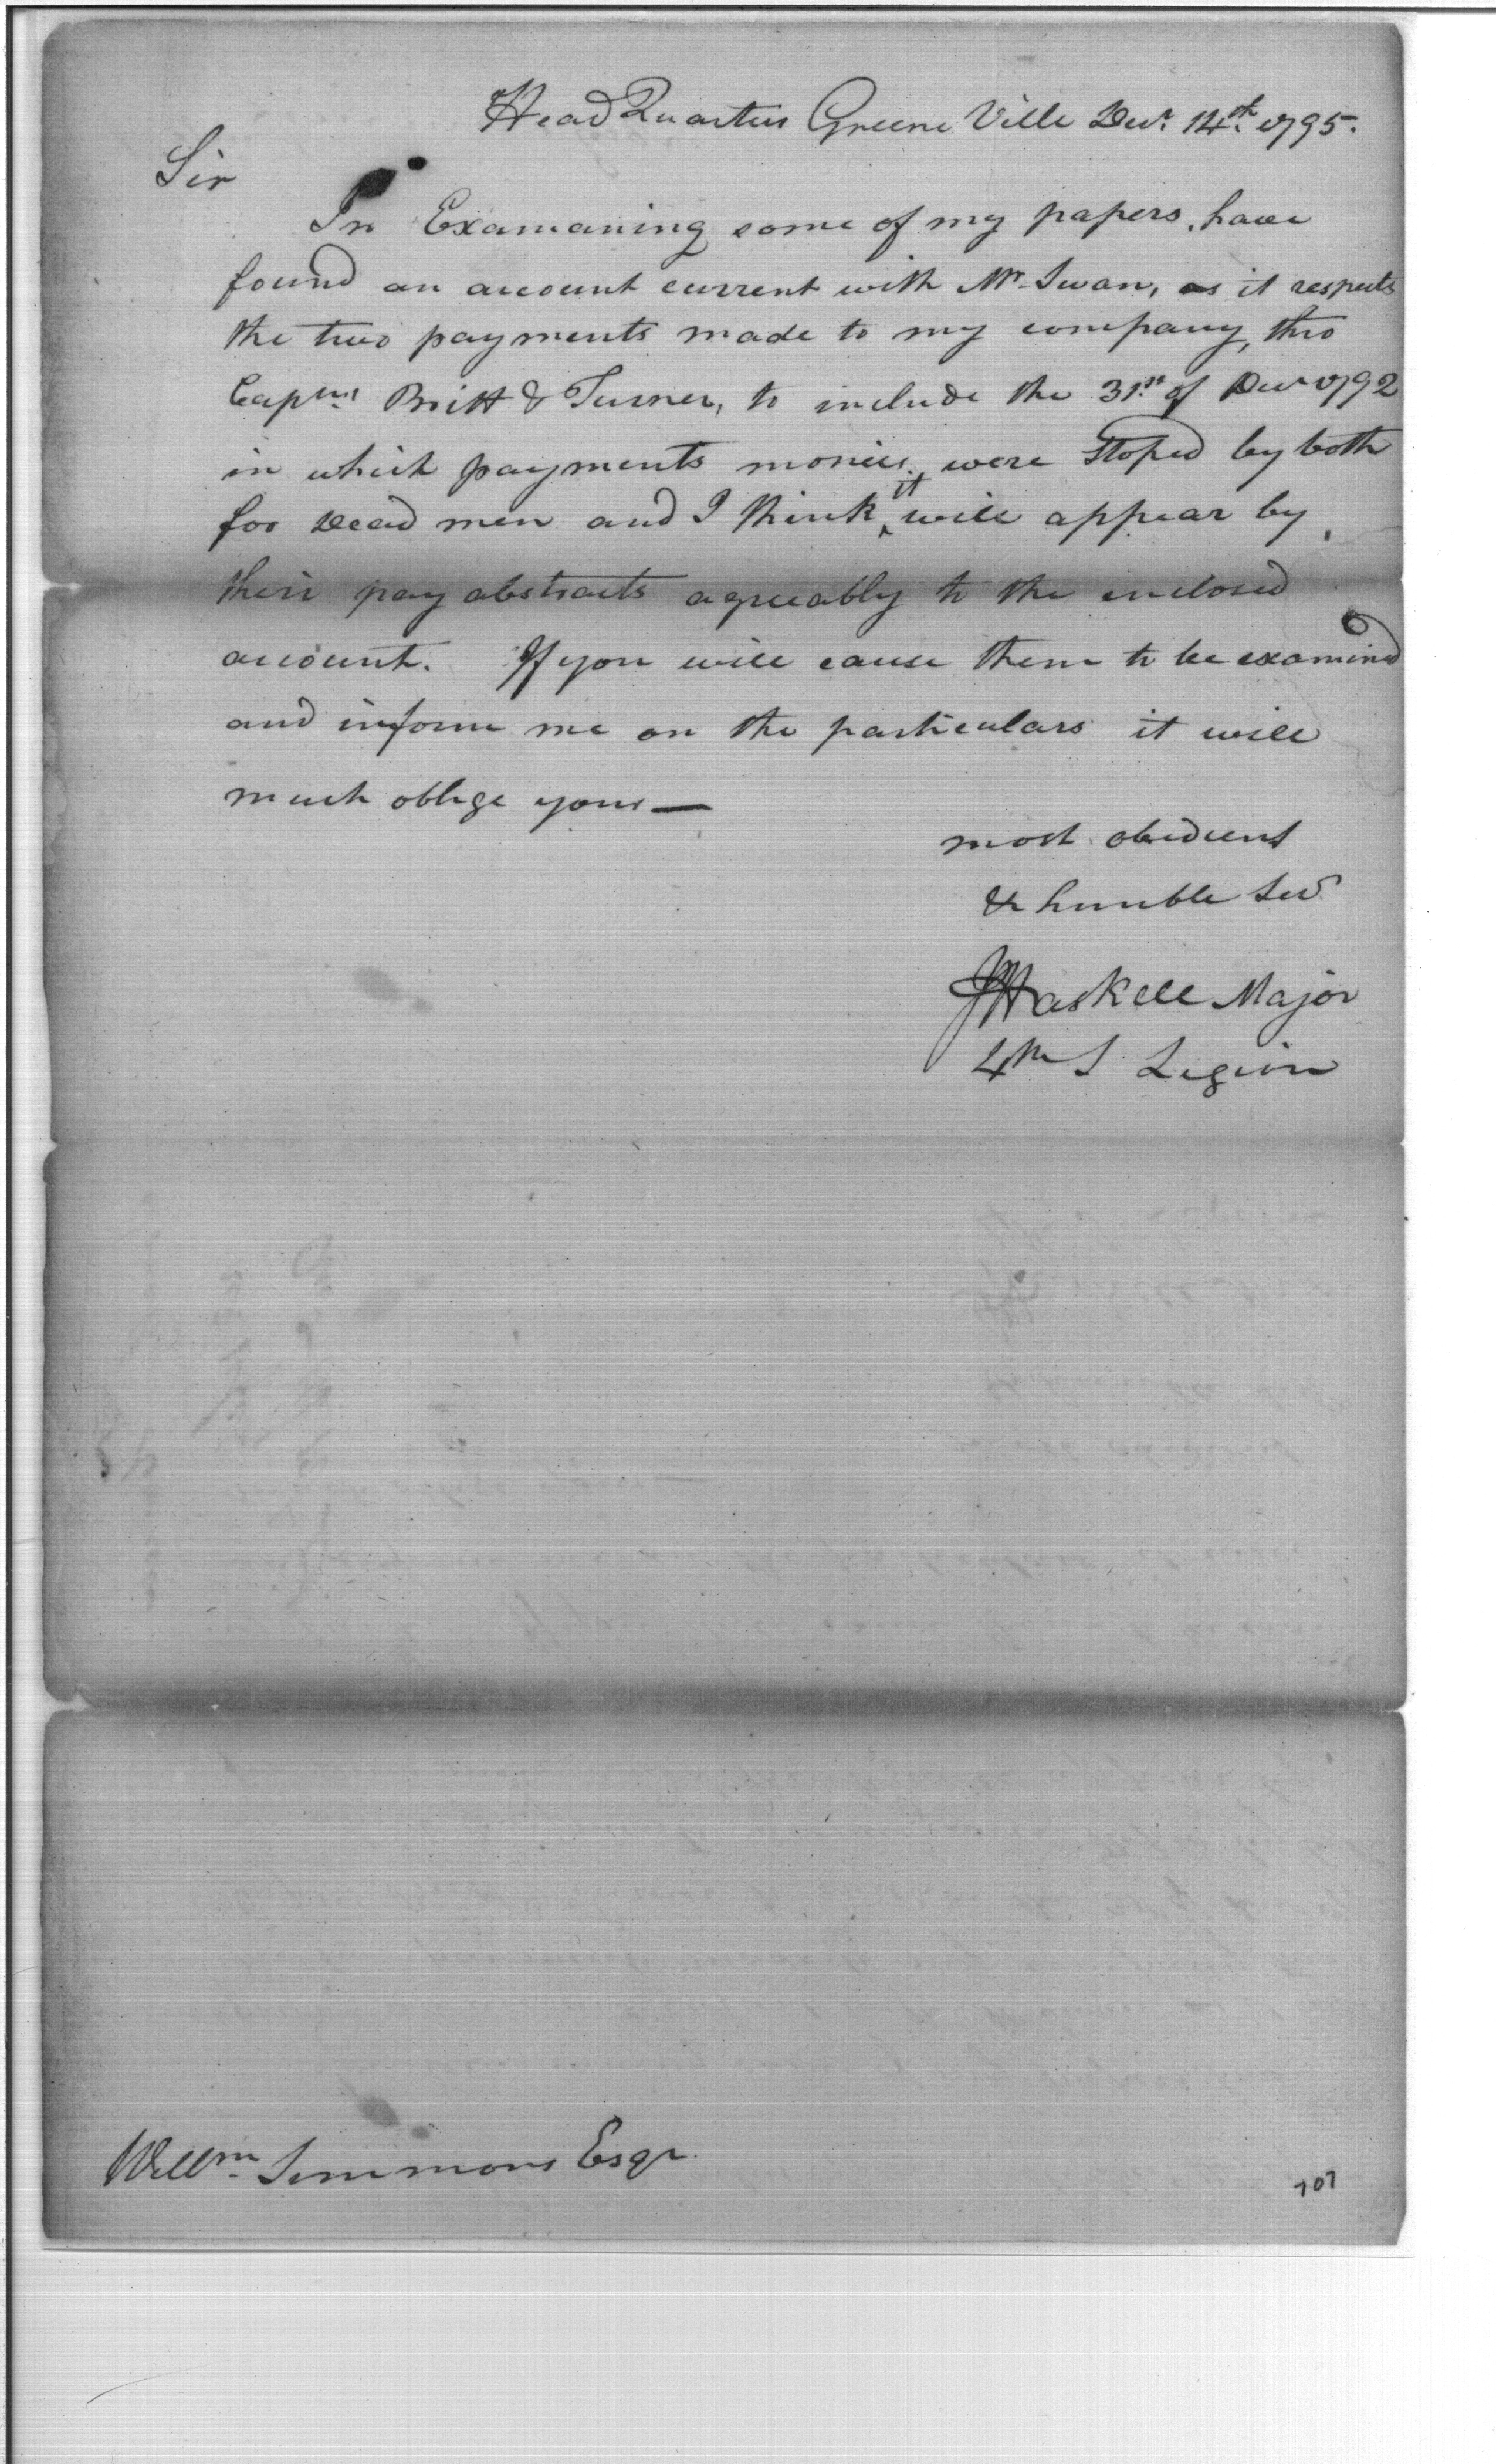 Head Quarters Greene Ville Decr. 14th. 1795.
Sir
In Examaning some of my papers, have
found an account current with Mr. Swan, as it respects
the two payments made to my company, thro
Captns. Britt & Turner, to include the 31st. of Decr 1792
in which payments monies were stoped by both
for Dead men and I think it will appear by
their pay abstracts agreeably to the inclosed
account. If you will cause them to be examined
and inform me on the particulars it will
much oblige yours —
most obedient
& humble Servt
JHaskell Major
4th S Legion
Willm. Simmons Esqr.
707